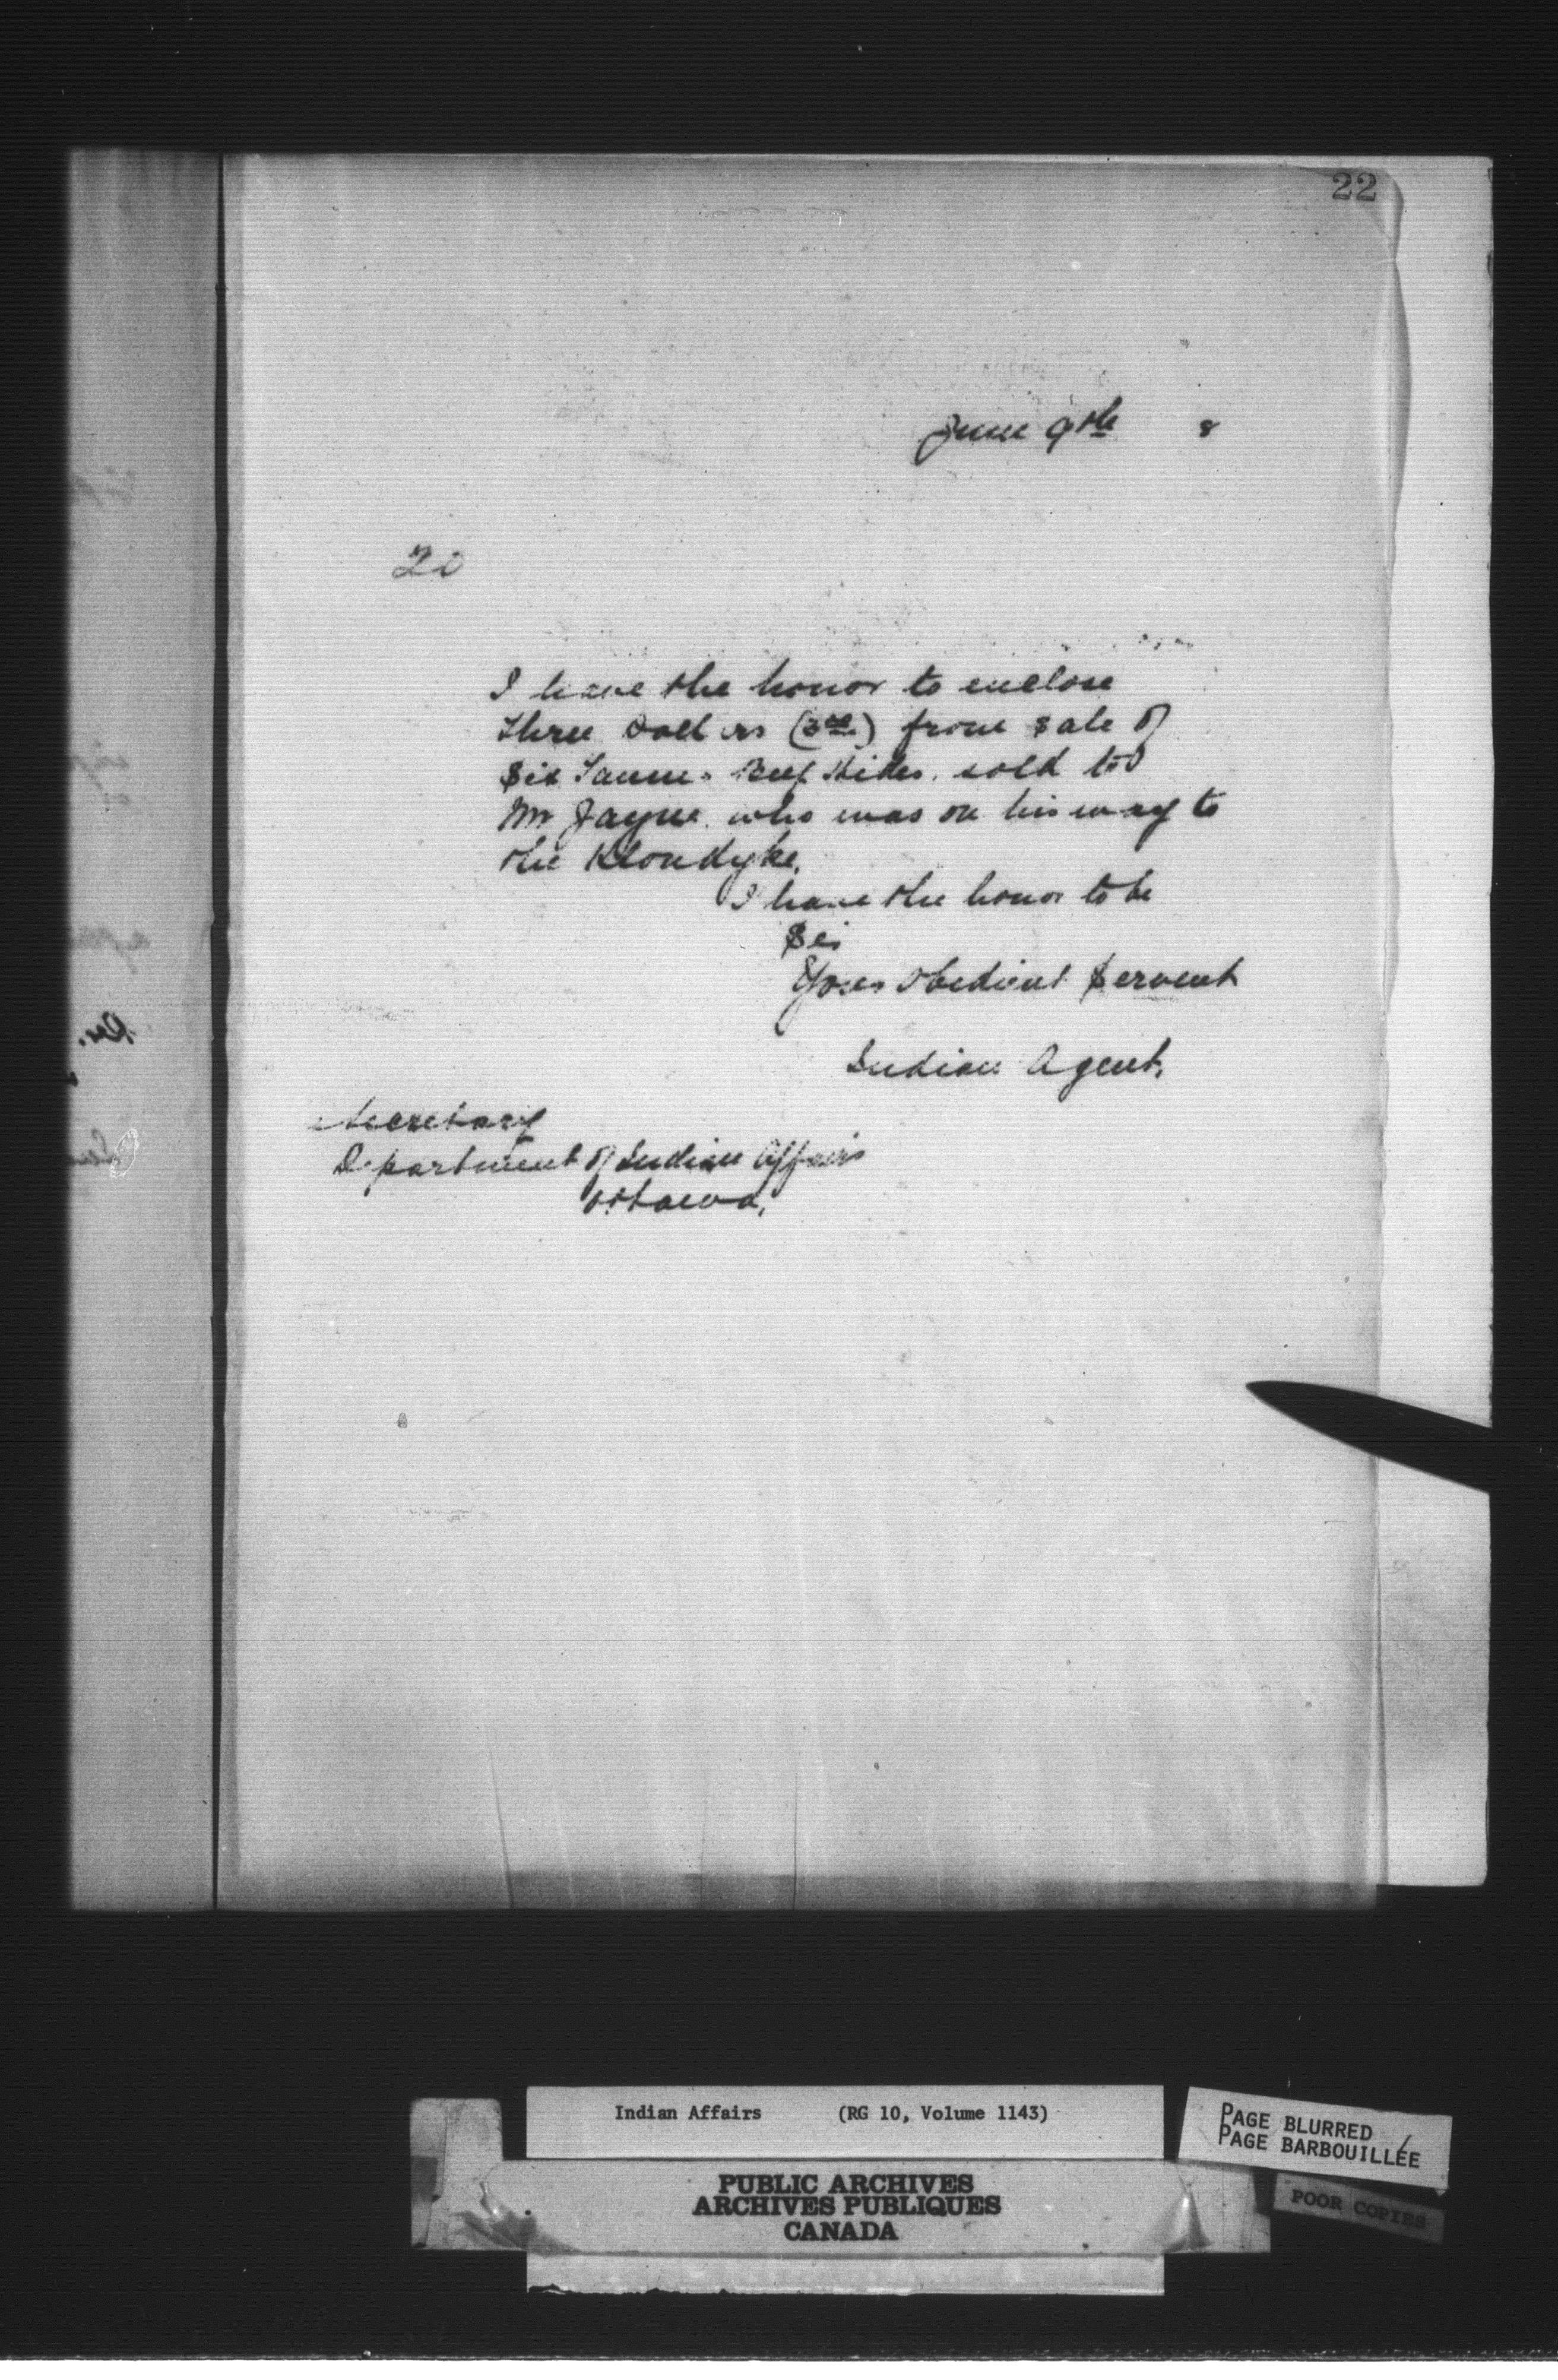 22
June 9th 8
20
I have the honor to enclose
Three Dollars (3.00) from Sale of
Six Beef Hides. sold to
Mr Jayne. who was on his way to
the Klondyke.
I have the honor to be
Sir
Your Obedient Servent
Indian Agent.
Secretary
Department of Indian Affairs
Ottawa,
Indian Affairs (RG 10, Volume 1143)
PUBLIC ARCHIVES
ARCHIVES PUBLIQUES
CANADA
PAGE BLURRED
PAGE BARBOUILLÉE
POOR COPIES